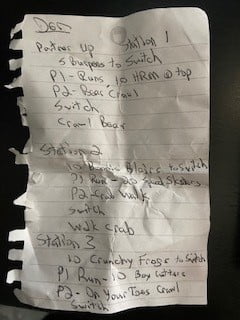 Partner Up Station 1
5 Burpees to Switch
P1 - Runs 10 HRM @ top
P2 - Bear Crawl
Switch
Crawl Bear
Station 2
to switch
P1 Run - 20
P2 - Crab Walk
Switch
Walk Crab
Station 3
10 Crunchy Frogs to Switch
P1 Run - 10 Box Cutters
P2 - On Your Toes Crawl
Switch